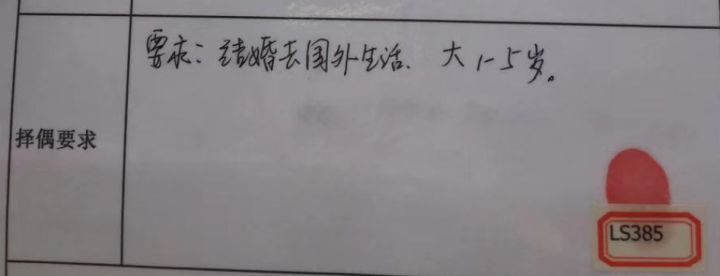 要求：结婚去国外生活. 大1-5岁。
择偶要求
LS385